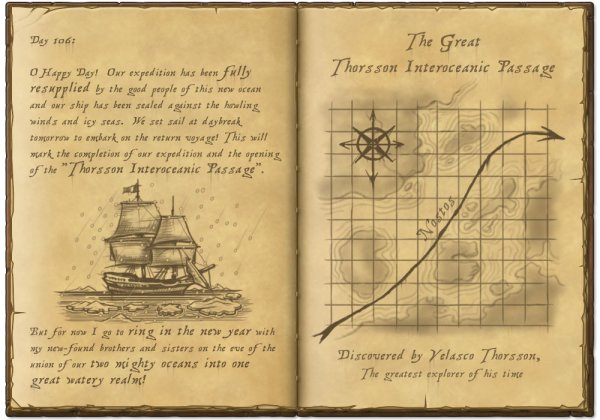 Day 106:
O Happy Day! Our expedition has been fully
resupplied by the good people of this new ocean
and our ship has been sealed against the howling
winds and icy seas. We set sail at daybreak
tomorrow to embark on the return voyage! This will
mark the completion of our expedition and the opening
of the "Thorsson Interoceanic Passage".
But for now I go to ring in the new year with
my new-found brothers and sisters on the eve of the
union of our two mighty oceans into one
great watery realm!
The Great
Thorsson Interoceanic Passage
Nostos
Discovered by Velasco Thorsson,
The greatest explorer of his time